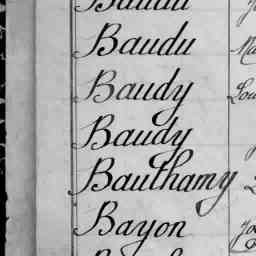 Baudu
Baudu
Baudy
Baudy
Bauthamy
Bayon